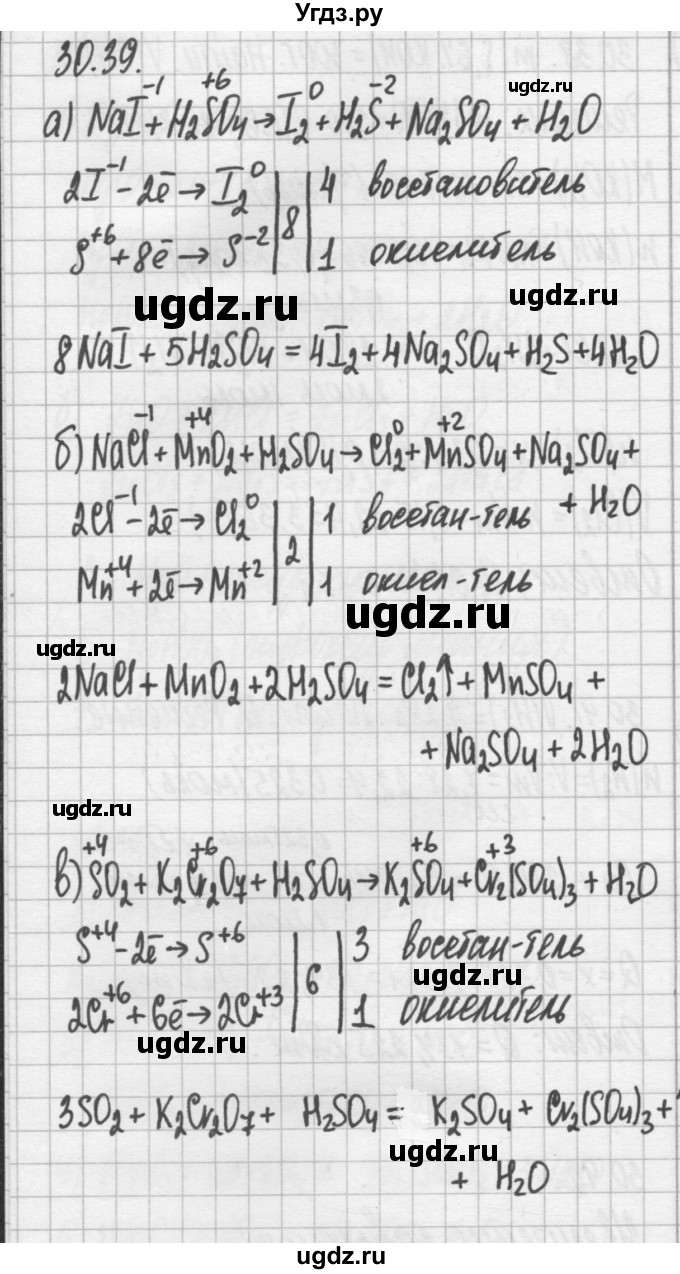 Угдз.ру
30.39.
ugdz.ru
а) NaI⁻¹ + H₂S⁺⁶O₄ → I₂⁰ + H₂S⁻² + Na₂SO₄ + H₂O
2I⁻¹ - 2ē → I₂⁰ | 8 | 4 восстановитель
S⁺⁶ + 8ē → S⁻² | 1 окислитель
ugdz.ru
ugdz.ru
8NaI + 5H₂SO₄ = 4I₂ + 4Na₂SO₄ + H₂S + 4H₂O
б) NaCl⁻¹ + Mn⁺⁴O₂ + H₂SO₄ → Cl₂⁰ + Mn⁺²SO₄ + Na₂SO₄ +
+ H₂O
2Cl⁻¹ - 2ē → Cl₂⁰ | 2 | 1 восстан-тель
Mn⁺⁴ + 2ē → Mn⁺² | 1 окисл-тель
ugdz.ru
ugdz.ru
2NaCl + MnO₂ + 2H₂SO₄ = Cl₂↑ + MnSO₄ +
+ Na₂SO₄ + 2H₂O
ugdz.ru
в) S⁺⁴O₂ + K₂Cr₂⁺⁶O₇ + H₂SO₄ → K₂S⁺⁶O₄ + Cr₂⁺³(SO₄)₃ + H₂O
S⁺⁴ - 2ē → S⁺⁶ | 6 | 3 восстан-тель
ugdz.ru
2Cr⁺⁶ + 6ē → 2Cr⁺³ | 1 окислитель
ugdz.ru
3SO₂ + K₂Cr₂O₇ + H₂SO₄ = K₂SO₄ + Cr₂(SO₄)₃ +
ugdz.ru
+ H₂O
ugdz.ru